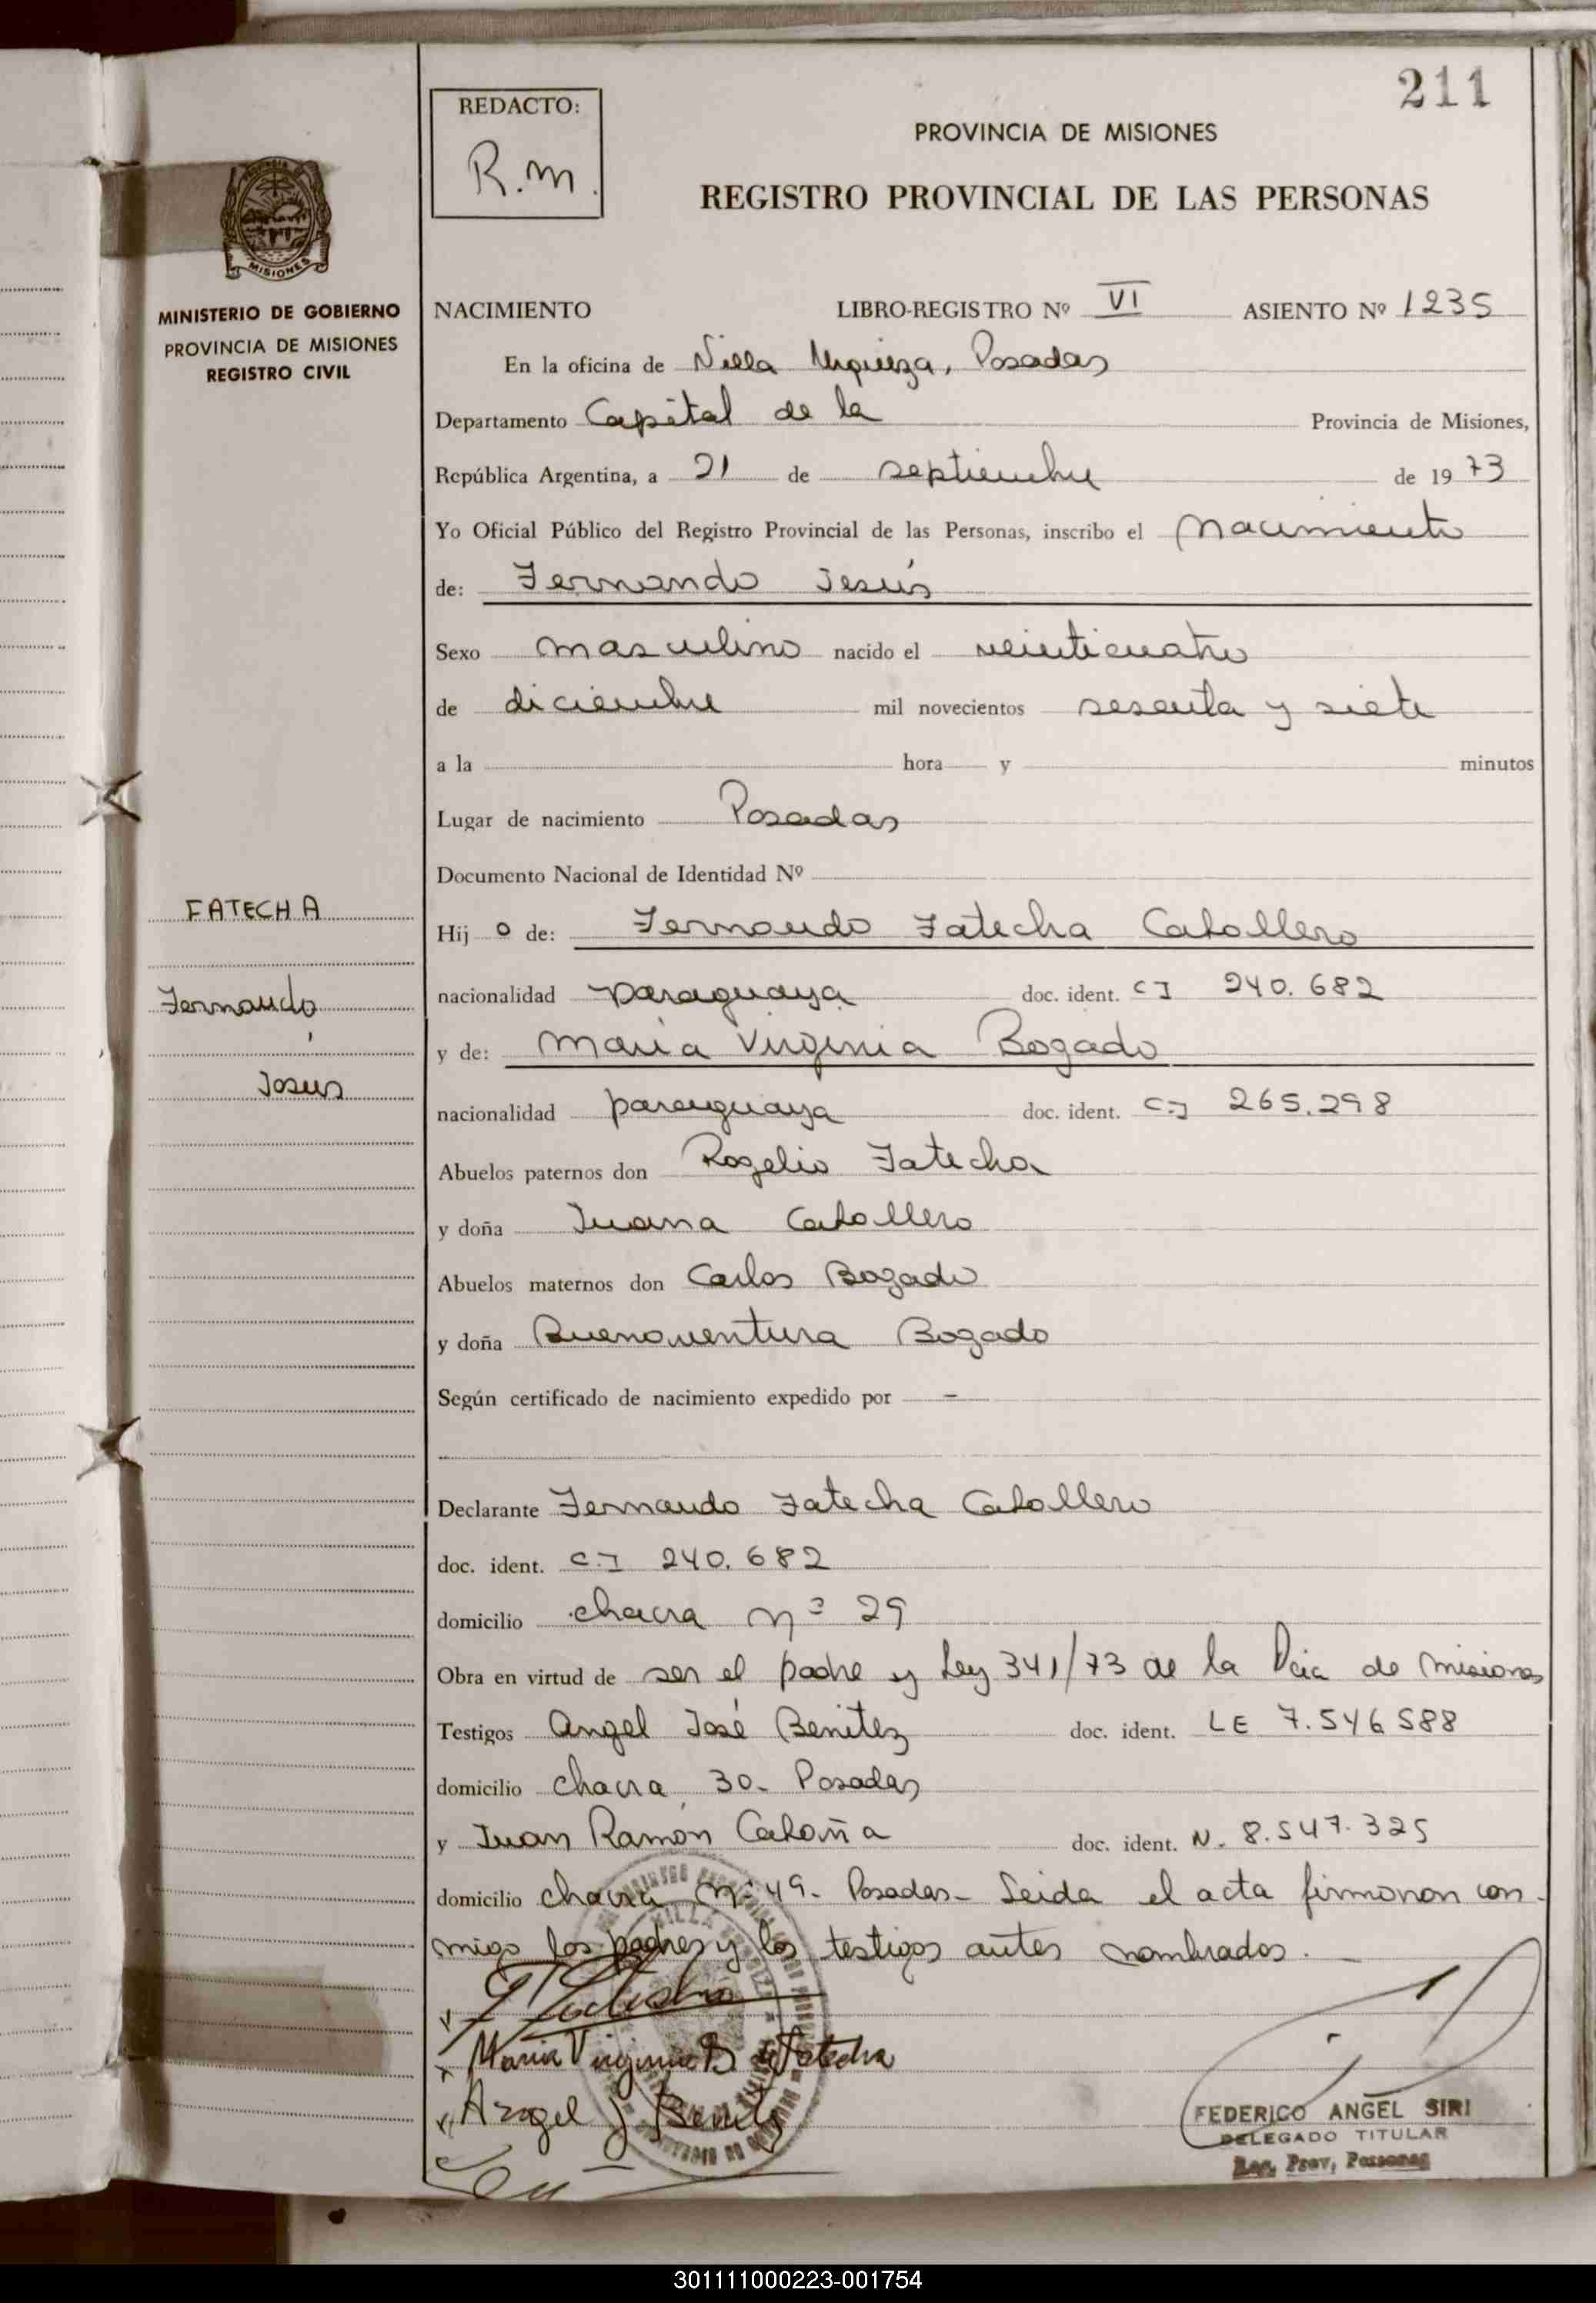 211
REDACTO:
R.M.
PROVINCIA DE MISIONES
REGISTRO PROVINCIAL DE LAS PERSONAS
MISIONES
MINISTERIO DE GOBIERNO
PROVINCIA DE MISIONES
REGISTRO CIVIL
NACIMIENTO LIBRO-REGISTRO Nº VI ASIENTO Nº 1235
En la oficina de Villa Urquiza, Posadas
Departamento Capital de la Provincia de Misiones,
República Argentina, a 21 de septiembre de 19 73
Yo Oficial Público del Registro Provincial de las Personas, inscribo el Nacimiento
de: Fernando Jesús
Sexo masculino nacido el veinticuatro
de diciembre mil novecientos sesenta y siete
a la hora y minutos
Lugar de nacimiento Posadas
Documento Nacional de Identidad Nº
FATECHA
Fernando
Jesus
Hij o de: Fernando Fatecha Caballero
nacionalidad paraguaya doc. ident. CI 240.682
y de: Maria Virginia Bogado
nacionalidad paraguaya doc. ident. C.I 265.298
Abuelos paternos don Rogelio Fatecha
y doña Juana Caballero
Abuelos maternos don Carlos Bogado
y doña Buenaventura Bogado
Según certificado de nacimiento expedido por -
Declarante Fernando Fatecha Caballero
doc. ident. C.I 240.682
domicilio chacra nº 29
Obra en virtud de ser el padre y Ley 341/73 de la Pcia de Misiones
Testigos Angel José Benitez doc. ident. LE 7.546588
domicilio chacra 30- Posadas
y Juan Ramón Cabaña doc. ident. N. 8.547.325
domicilio chacra Nº 49- Posadas- Leida el acta firmaron con-
migo los padres y los testigos antes nombrados.
F Fatecha
Maria Virginia B de Fatecha
Angel J Benitez
FEDERICO ANGEL SIRI
DELEGADO TITULAR
Reg. Prov. Personas
301111000223-001754